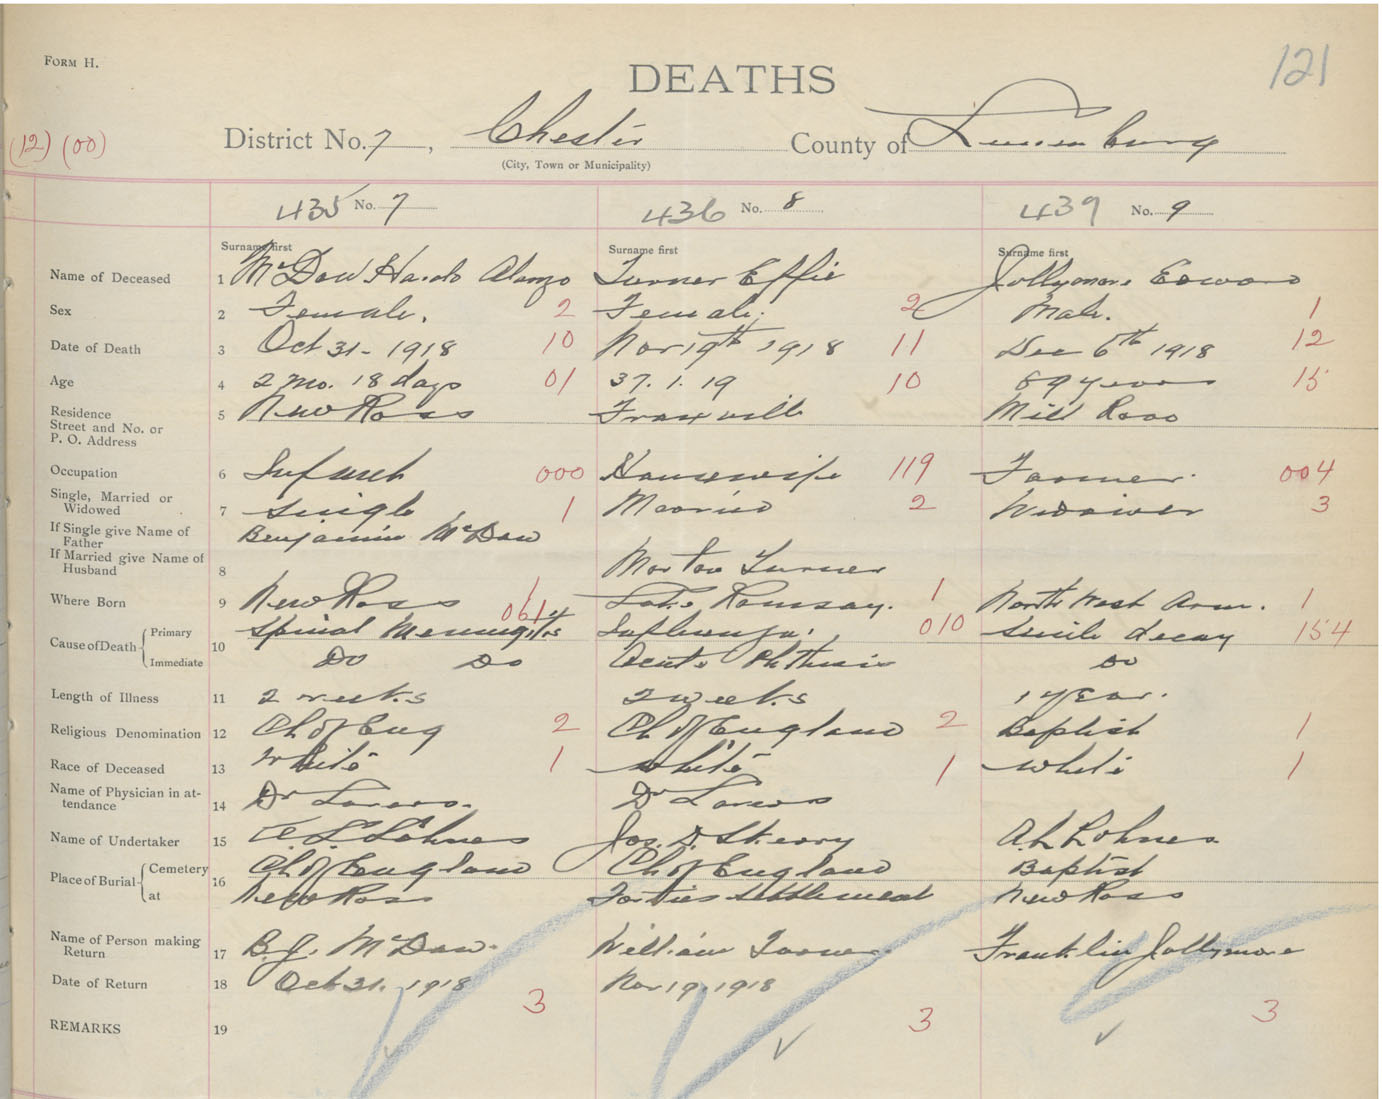 Form H.
DEATHS
121
(12) (00)
District No. 7, Chester County of Lunenburg
(City, Town or Municipality)
435 No. 7 436 No. 8 439 No. 9
Surname first Surname first Surname first
Name of Deceased 1 McDow Alonzo Turner Effie Jollymore Edward
Sex 2 Female. 2 Female. 2 Male. 1
Date of Death 3 Oct 31 - 1918 10 Nov 19th 1918 11 Dec 6th 1918 12
Age 4 2 mo. 18 days 01 37. 1. 19 10 89 years 15
Residence
Street and No. or 5 New Ross Mill Road
P. O. Address
Occupation 6 Infant 000 Housewife 119 Farmer. 004
Single, Married or
Widowed 7 Single 1 Married 2 Widower 3
If Single give Name of
Father Benjamin McDow
If Married give Name of
Husband 8 Morton Turner
Where Born 9 New Ross 1 Lake Ramsay. 1 North West Arm. 1
Cause of Death Primary Spinal Meningitis 0614 Influenza. 010 Senile decay 154
10
Immediate Do Do Acute Phthisis Do
Length of Illness 11 2 weeks 2 weeks 1 year.
Religious Denomination 12 Ch of Eng 2 Ch of England 2 Baptist 1
Race of Deceased 13 White 1 White 1 White 1
Name of Physician in at-
tendance 14 Dr Dr
Name of Undertaker 15 Lohnes Jos. D. Sherry A. L. Lohnes
Place of Burial Cemetery Ch of England Ch of England Baptist
16
at New Ross Forties Settlement New Ross
Name of Person making
Return 17 B. J. McDow. William Turner. Franklin Jollymore
Date of Return 18 Oct 31. 1918 Nov 19. 1918
3 3 3
REMARKS 19